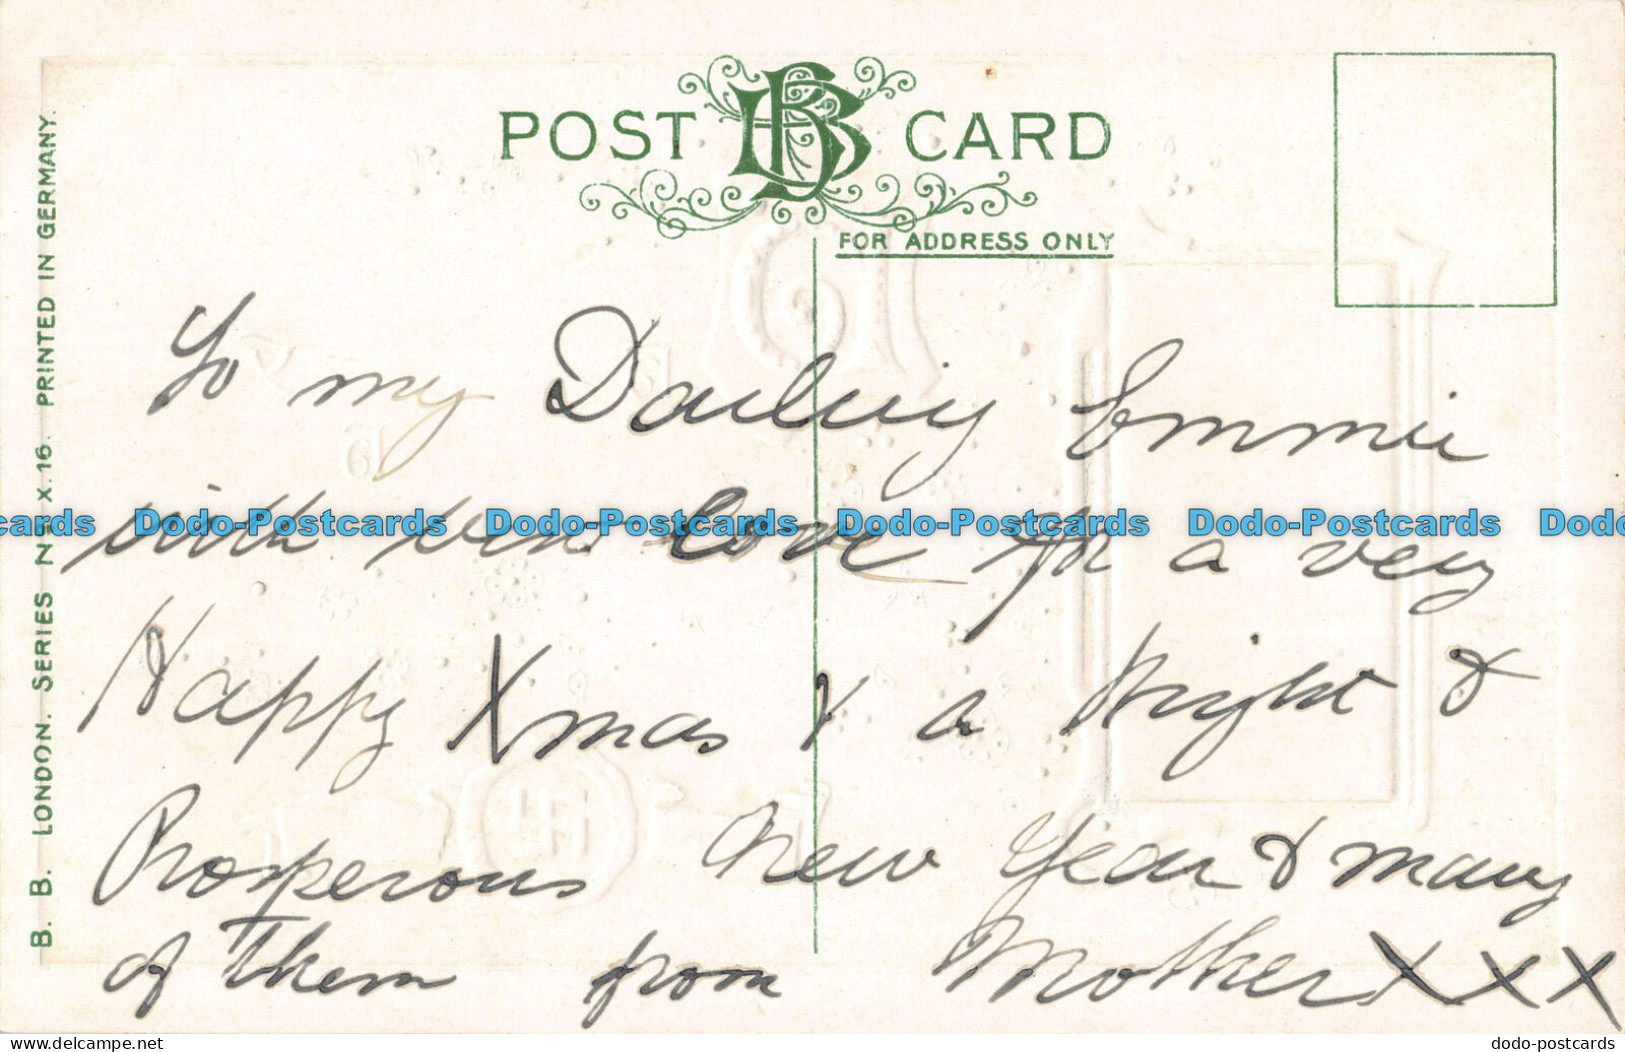 POST CARD
FOR ADDRESS ONLY
B. B. LONDON. SERIES Nº X.16. PRINTED IN GERMANY.
To my Darling Emmie
with love for a very
Happy Xmas & a bright &
Prosperous New Year & many
of them from Mother XXX
Dodo-Postcards Dodo-Postcards Dodo-Postcards Dodo-Postcards
delcampe.net
Dodo-postcards